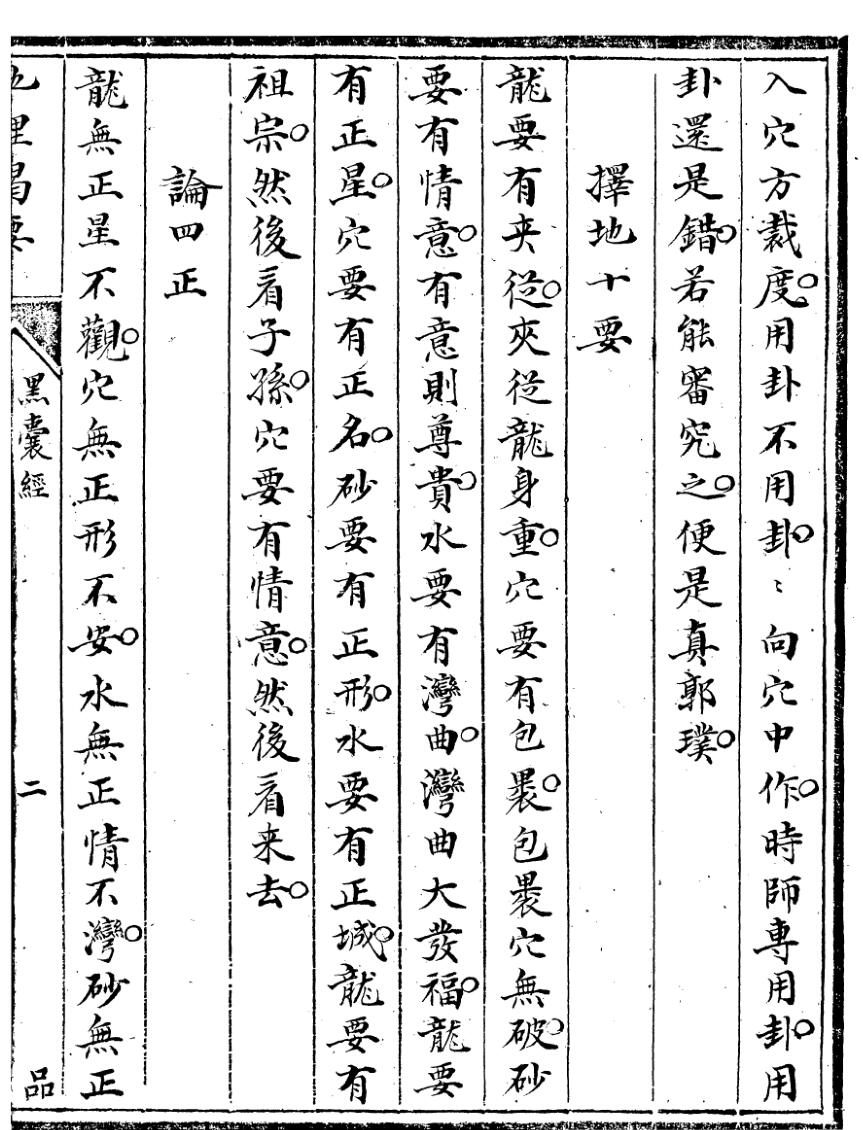 入穴方裁度○用卦不用卦○〻向穴中作○時師專用卦○用
卦還是錯○若能審究之○便是真郭璞○
擇地十要
龍要有夾從○夾從龍身重○穴要有包裹○包裹穴無破○砂
要有情意○有意則尊貴○水要有灣曲○灣曲大發福○龍要
有正星○穴要有正名○砂要有正形○水要有正城○龍要有
祖宗○然後看子孫○穴要有情意○然後看来去○
論四正
龍無正星不觀○穴無正形不安○水無正情不灣○砂無正
黑囊經
二
品